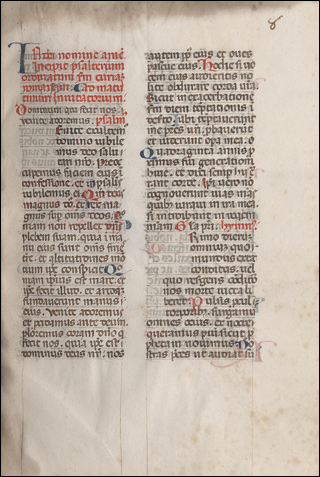 8
In nomine
Incipit psalterium
ordinatum
romanam. Ad matu
tinum invitatorium.
Dominum qui fecit nos. v
venite adoremus. psalm
Enite exultem
domino iubile
mus deo salu
tari nro. preoc
cupemus faciem eius i
confessione. et in psalmis
iubilemus ei. Qm deus
magnus dns. et rex ma
gnus sup omnes deos.
niam non repellet dns
plebem suam. quia i ma
nu eius sunt omns fines
tre. et altitudines mo
tium ipse conspicit. Qm
niam ipsius est mare. et
ipse fecit illud. et aridam
fundaverunt manus e
ius. venite adoremus
et procidamus ante deum
ploremus coram dno q
fecit nos. quia ipse est
dominus deus nr. nos
autem pp eius et oves
pascue eius. Hodie si vo
cem eius audieritis no
lite obdurare corda vra
Sicut in exacerbatione
sm diem temptationis i
deserto. ubi temptaverunt
me pres vri. pbaverunt
et viderunt opa mea. v
Quadraginta annis p
ximus fui generationi
huic. et dixi semp hii e
rant corde. Ipi vero no
cognoverunt vias meas
quibus iuravi in ira mea
si introibunt in requiem
meam. Gla pri. hymnus
Rimo dierum
omnium quo
mundus extat
conditus. vel
quo resurgens conditor
nos morte victa li
beret. Pulsis procul
torporibus. surgamus
omnes ocius. et nocte
queramus pium sicut p
phetam novimus. No
stras preces ut audiat su